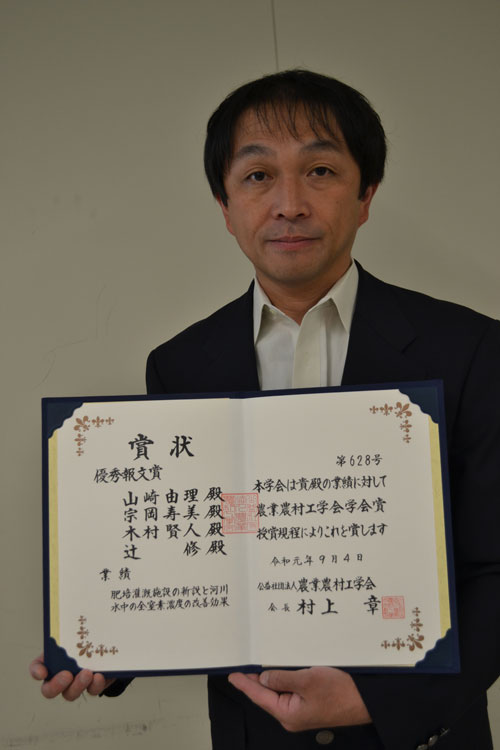 賞状
優秀報文賞
山崎由理殿
宗岡寿美殿
木村賢人殿
辻修殿
業績
肥培灌漑施設の新設と河川
水中の全窒素濃度の改善効果
第628号
本学会は貴殿の業績に対して
農業農村工学会学会賞
授賞規程によりこれを賞します
令和元年9月4日
公益社団法人 農業農村工学会
会長 村上章